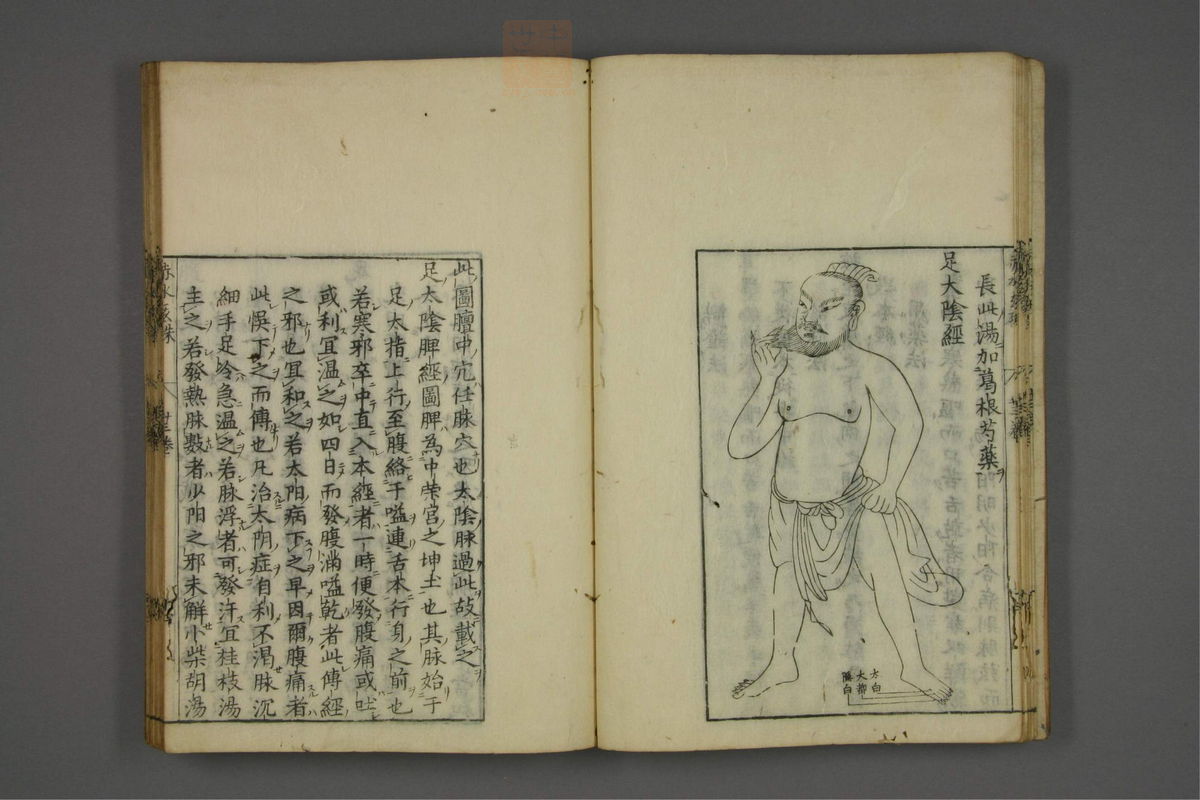 長此湯加葛根芍藥
足大陰經
太白
大都
隱白
此圖膻中穴任脉穴也太陰脉過此故載之
足太陰脾經圖脾為中荣宮之坤土也其脉始于
足太指上行至腹絡于嗌連舌本行身之前也
若寒邪卒中直入本經者一時便發腹痛或吐
或利冝温之如四日而發腹滿嗌乾者此傳經
之邪也冝和之若太阳病下之早因爾腹痛者
此悞下之而傳也凡治太阴症自利不渴脉沉
細手足冷急温之若脉浮者可發汗冝桂枝湯
主之若發熱脉數者少阳之邪未解小柴胡湯